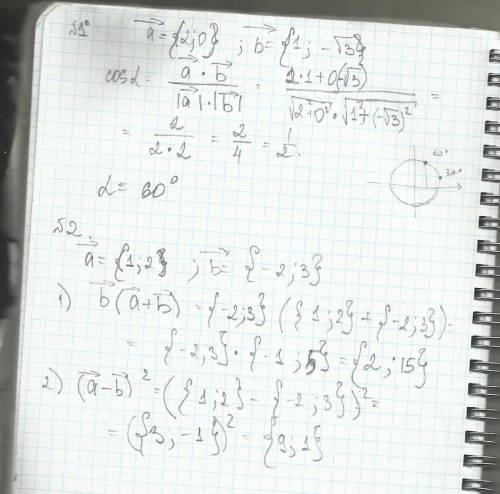 №1° a⃗ = {2;0} ; b⃗ = {1; -√3}
cos α = (a⃗ · b⃗)/(|a⃗|·|b⃗|) = (2·1+0(-√3))/(√(2²+0²) · √(1²+(-√3)²)) =
= 2/(2·2) = 2/4 = 1/2.
60°
30°
α = 60°
№2.
a⃗ = {1;2} ; b⃗ = {-2;3}
1) b⃗ (a⃗+b⃗) = {-2;3} ({1;2} + {-2;3}) =
= {-2;3} · {-1;5} = {2;15}
2) (a⃗-b⃗)² = ({1;2} - {-2;3})² =
= ({3;-1})² = {9;1}